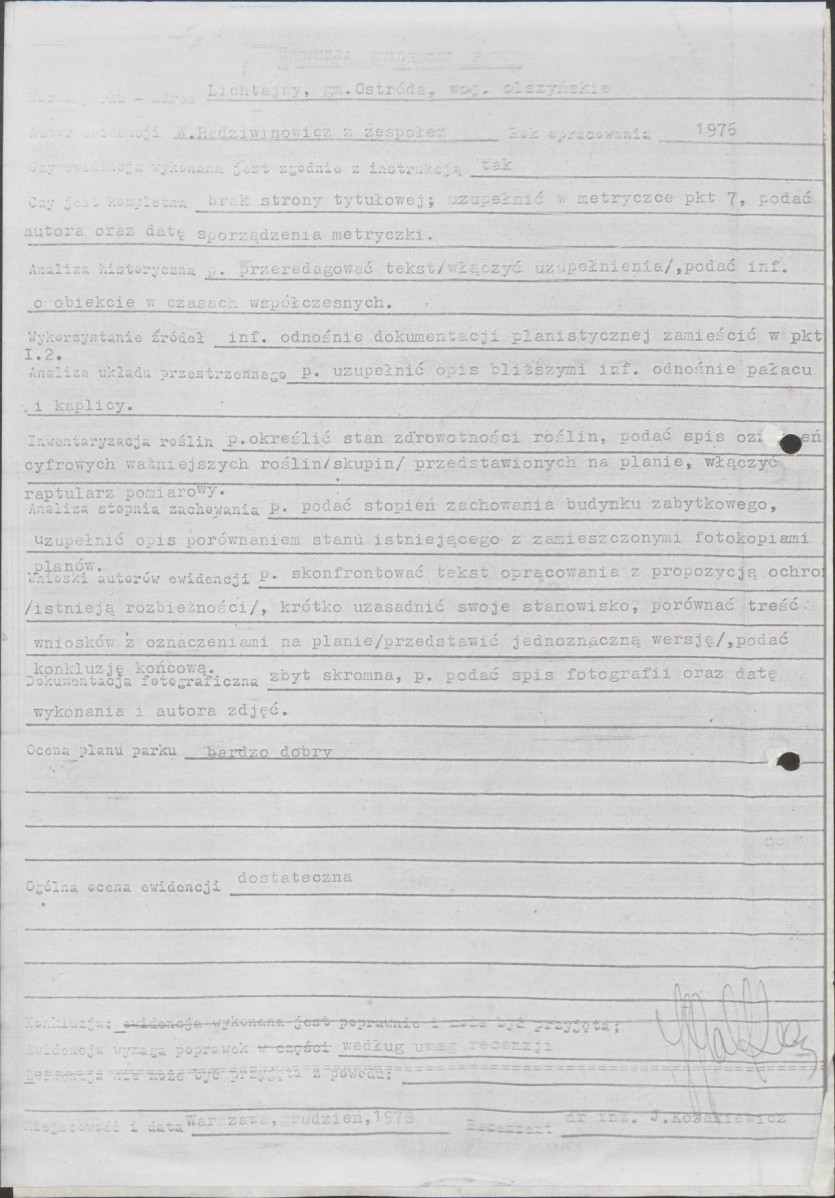 RECENZJA EWIDENCJI PARKU
Nazwa parku - adres Lichtajny, gm.Ostróda, woj. olszyńskie
Autor ewidencji M.Radziwinowicz z zespołem Rok opracowania 1976
Czy ewidencja wykonana jest zgodnie z instrukcją tak
Czy jest kompletna brak strony tytułowej; uzupełnić w metryczce pkt 7, podać
autora oraz datę sporządzenia metryczki.
Analiza historyczna p. przeredagować tekst/włączyć uzupełnienia/,podać inf.
o obiekcie w czasach współczesnych.
Wykorzystanie źródeł inf. odnośnie dokumentacji planistycznej zamieścić w pkt
I.2.
Analiza układu przestrzennego p. uzupełnić opis bliższymi inf. odnośnie pałacu
i kaplicy.
Inwentaryzacja roślin p.określić stan zdrowotności roślin, podać spis
cyfrowych ważniejszych roślin/skupin/ przedstawionych na planie, włączyć
raptularz pomiarowy.
Analiza stopnia zachowania p. podać stopień zachowania budynku zabytkowego,
uzupełnić opis porównaniem stanu istniejącego z zamieszczonymi fotokopiami
planów.
Wnioski autorów ewidencji p. skonfrontować tekst opracowania z propozycją ochro
/istnieją rozbieżności/, krótko uzasadnić swoje stanowisko, porównać treść
wniosków z oznaczeniami na planie/przedstawić jednoznaczną wersję/,podać
konkluzję końcową.
Dokumentacja fotograficzna zbyt skromna, p. podać spis fotografii oraz datę
wykonania i autora zdjęć.
Ocena planu parku bardzo dobry
Ogólna ocena ewidencji dostateczna
Konkluzja: ewidencja wykonana jest poprawnie i może być przyjęta;
Ewidencja wymaga poprawek w części według uwag recenzji
nie może być przyjęta z powodu:
Miejscowość i data Warszawa,grudzień,1978 Recenzent dr inż. J.Kosakiewicz